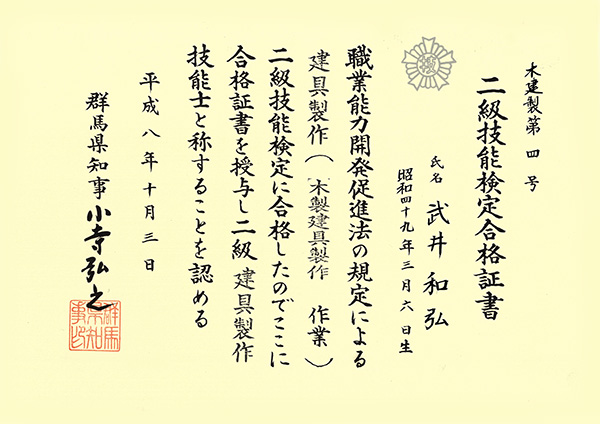 木建製第四号
二級技能検定合格証書
氏名 武井和弘
昭和四十九年三月六日生
職業能力開発促進法の規定による
建具製作(木製建具製作作業)
二級技能検定に合格したのでここに
合格証書を授与し二級建具製作
技能士と称することを認める
平成八年十月三日
群馬県知事 小寺弘之
群馬県知事印